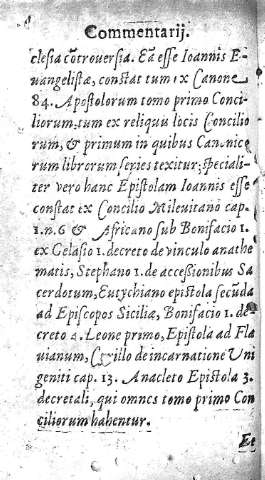 Commentarij.
clesia cõtroversia. Eã esse Ioannis E-
uangelistæ, constat tum ex Canone
84. Apostolorum tomo primo Conci-
liorum, tum ex reliquis locis Concilio
rum, & primum in quibus Canonico
rum librorum sepies texitur; speciali-
ter vero hanc Epistolam Ioannis esse
constat ex Concilio Mileuitano cap.
1.n.6 & Africano sub Bonifacio 1.
ex Gelasio 1. decreto de vinculo anathe
matis, Stephano 1. de accessionibus Sa
cerdotum, Eutychiano epistola secũda
ad Episcopos Siciliæ, Bonifacio 1. de-
creto 4. Leone primo, Epistola ad Fla
uianum, Cyrillo de incarnatione Uni
geniti cap. 13. Anacleto Epistola 3.
decretali, qui omnes tomo primo Con
ciliorum habentur.
Et